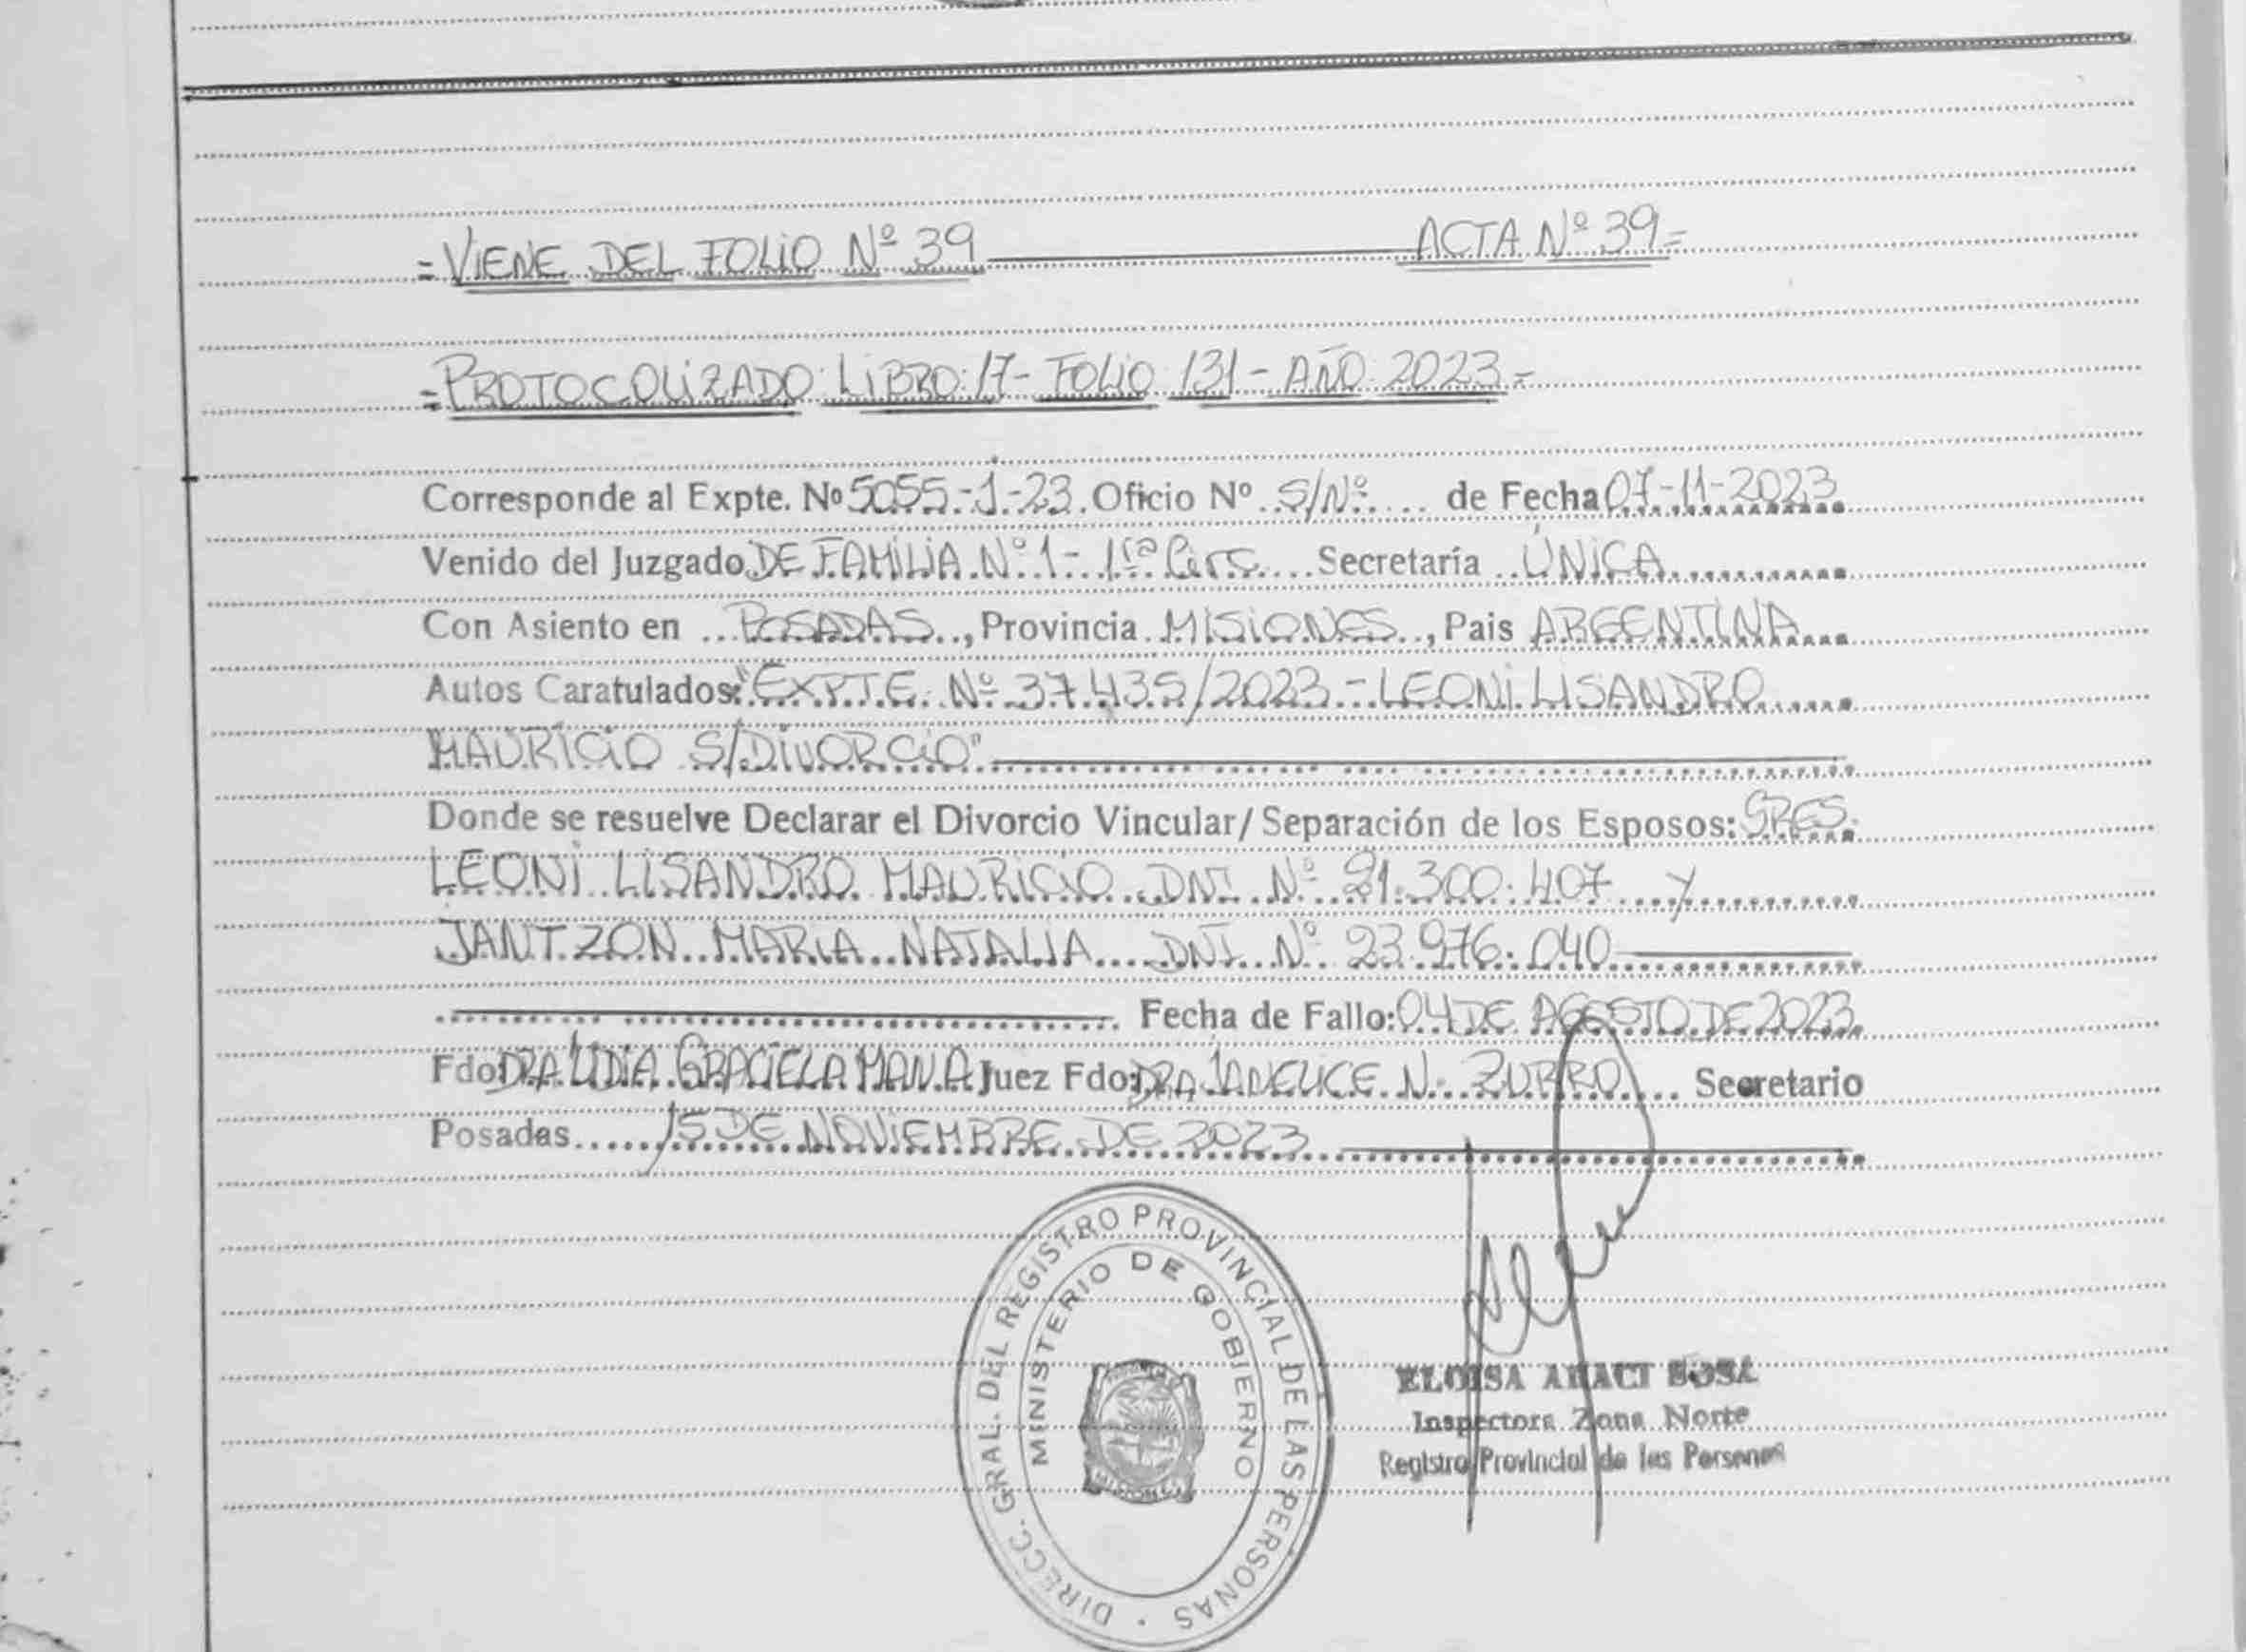 =VIENE DEL FOLIO Nº 39 ACTA Nº 39=
=PROTOCOLIZADO: LIBRO: 17- FOLIO: 131- AÑO: 2023=
Corresponde al Expte. Nº 5055-1-23. Oficio Nº S/Nº de Fecha 07-11-2023
Venido del Juzgado DE FAMILIA Nº 1- 1ra Circ. Secretaría ÚNICA
Con Asiento en POSADAS, Provincia MISIONES, Pais ARGENTINA
Autos Caratulados: "EXPTE. Nº 37.435/2023 - LEONI LISANDRO
MAURICIO S/DIVORCIO"
Donde se resuelve Declarar el Divorcio Vincular/Separación de los Esposos: SRES.
LEONI LISANDRO MAURICIO DNI Nº 21.300.407 y
JANTZON MARIA NATALIA DNI Nº 23.976.040
Fecha de Fallo: 04 DE AGOSTO DE 2023
Fdo: DRA LIDIA GRACIELA Juez Fdo: DRA N. ZURRO Secretario
Posadas 15 DE NOVIEMBRE DE 2023
DIRECC. GRAL. DEL REGISTRO PROVINCIAL DE LAS PERSONAS
MINISTERIO DE GOBIERNO
ELOISA ARACI SOSA
Inspectora Zona Norte
Registro Provincial de las Personas